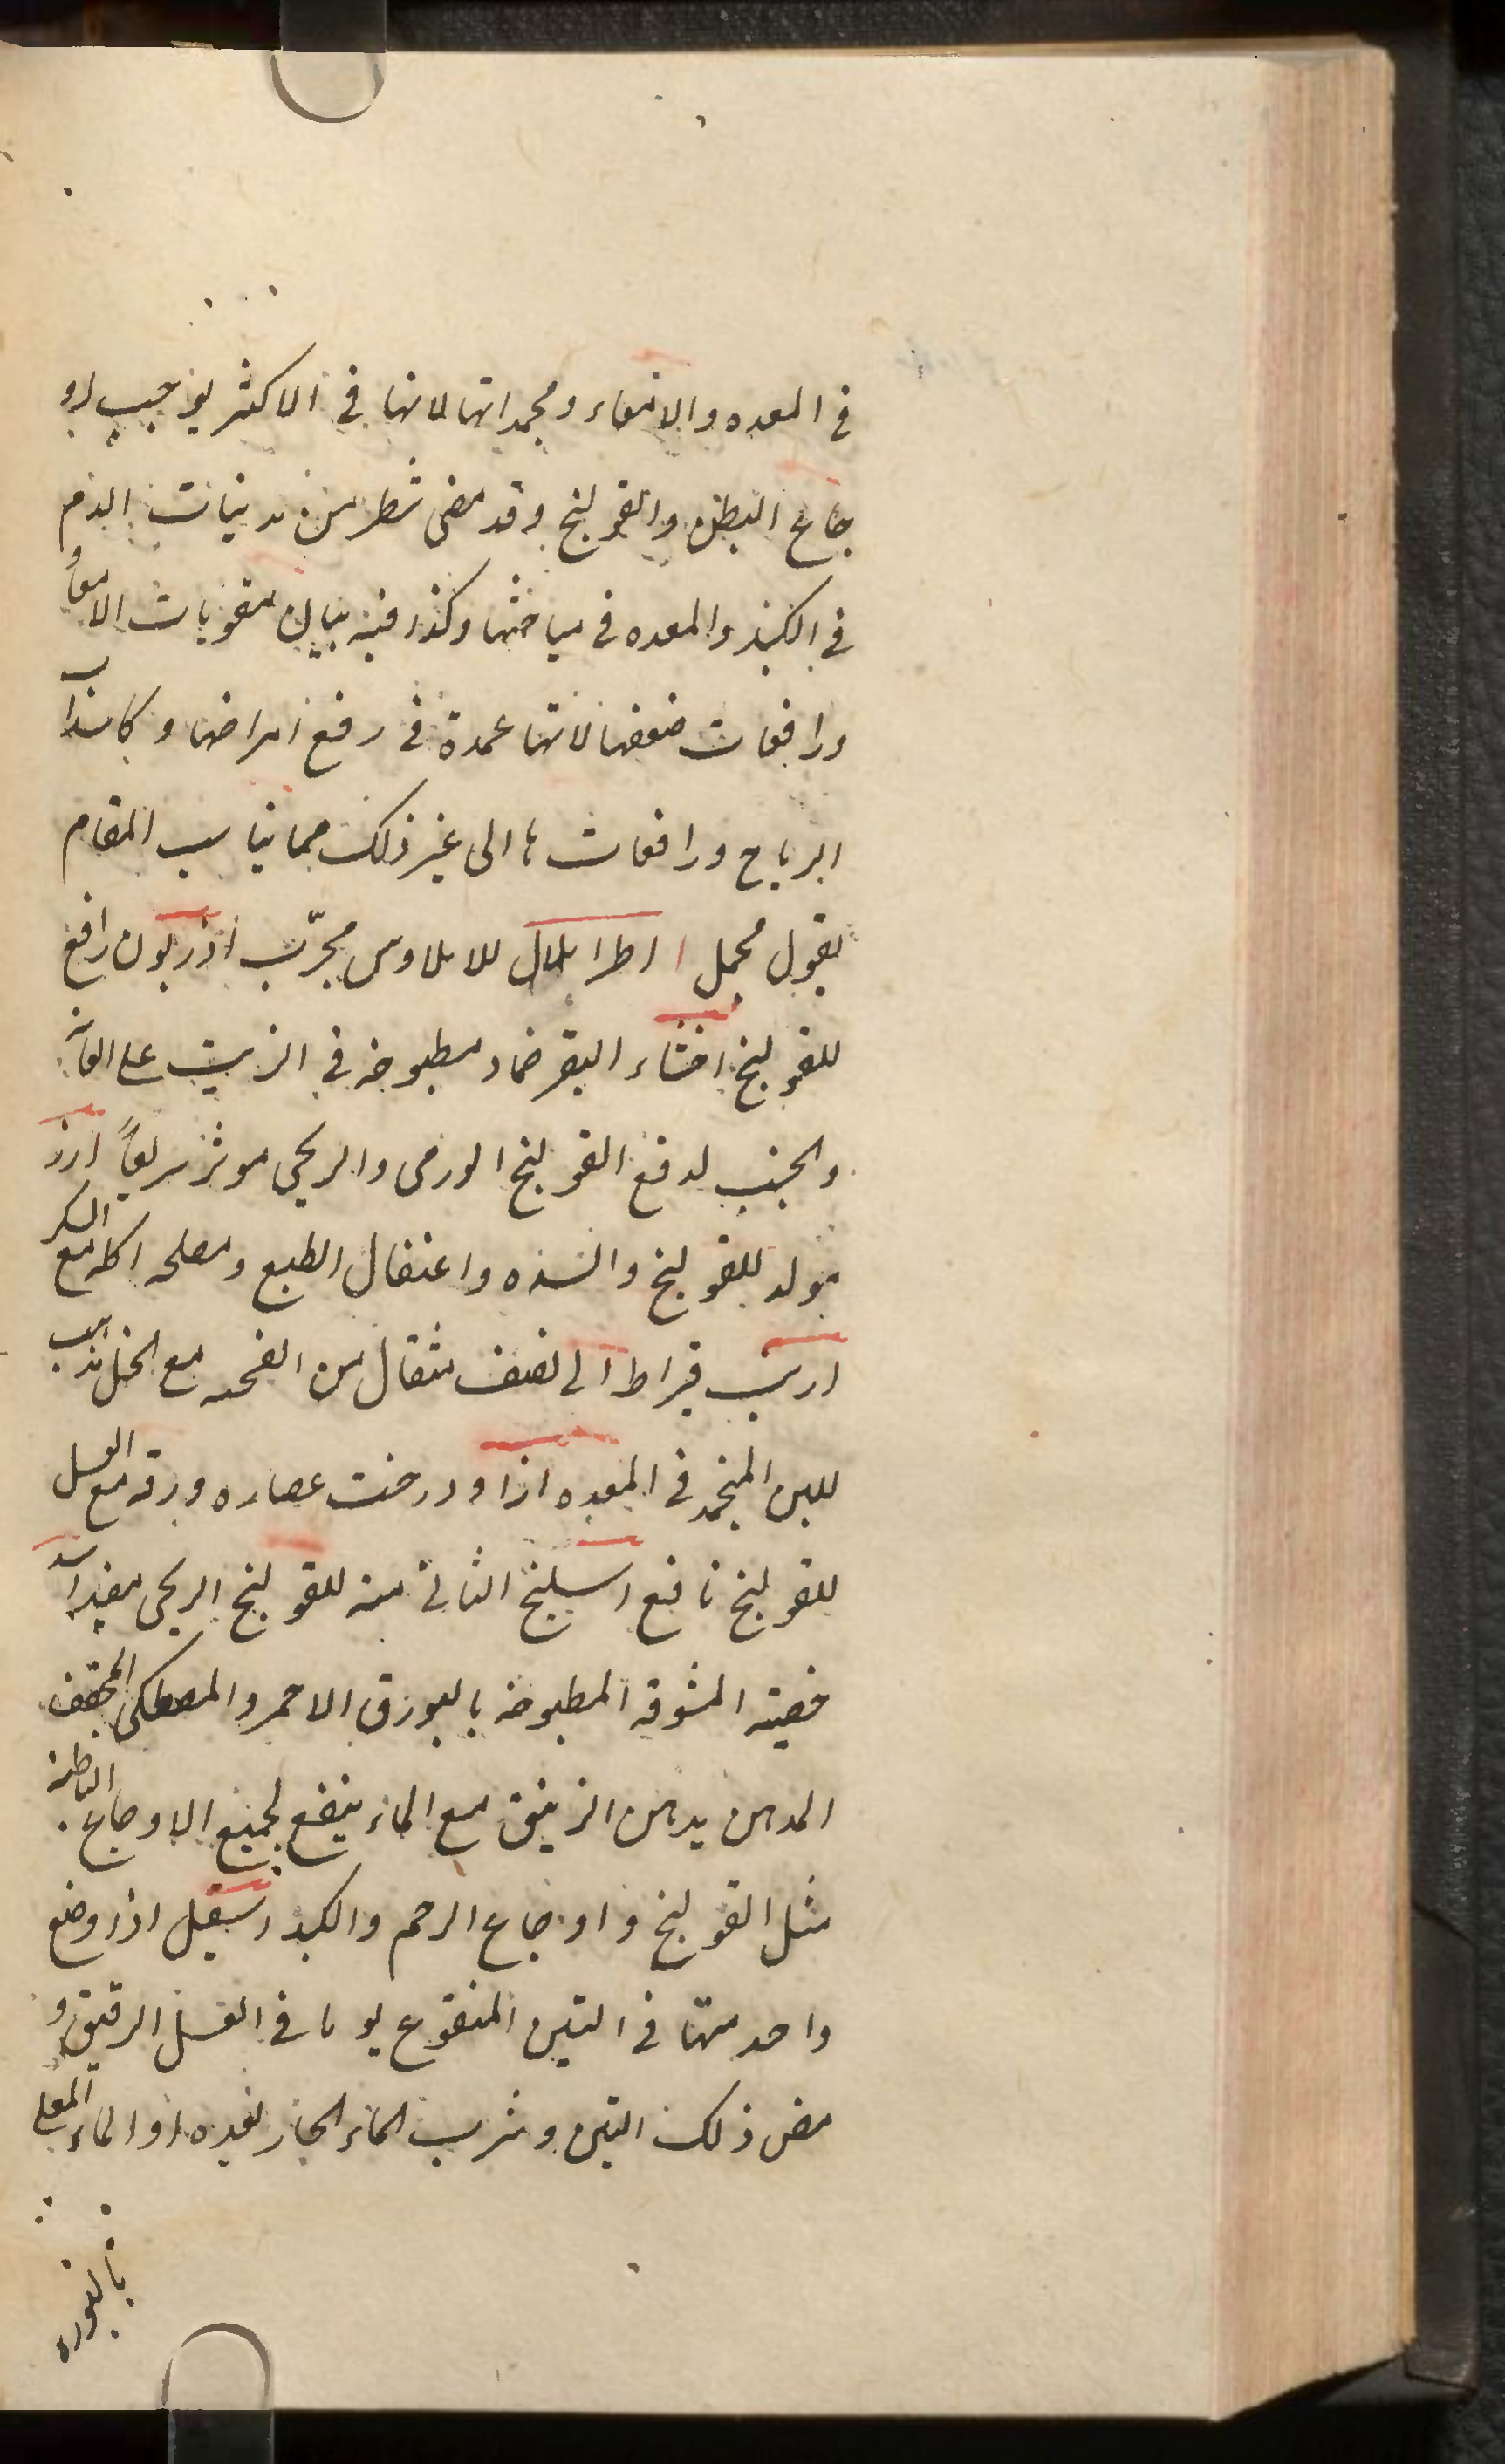 في المعده والامعاء ومجمداتها لانها في الاكثر يوجب او
جاع البطن والقولنج وقد مضى شطر من مذيبات الدم
في الكبد والمعده في مباحثها وكذا فيه بيان مقويات الامعا
ورافعات ضعفها لانها عمدة في رفع امراضها و
الرياح ورافعات ها الى غير ذلك مما يناسب المقام
بقول مجمل اطراىلال للايلاوس مجرّب اذربون رافع
للقولنج اخثاء البقر ضماد مطبوخه في الزيت على العانه
والجنب لدفع القولنج الورمى والريحي موثر سريعاً ارز
مولد للقولنج والسده واعتقال الطبع ومصلحه اكله مع السكر
ارنب قيراط الى نصف مثقال من انفحه مع الخل يذيب
للبن المنجمد في المعده ازاد درخت عصاره ورقه مع العسل
للقولنج نافع اسليخ الثاني منه للقولنج الريحى مفيد اسد
خصيته المشوقه المطبوخه بالبورق الاحمر والمصطكى المجفف
المدهن بدهن الزيبق مع الماء ينفع لجميع الاوجاع الباطنة
مثل القولنج واوجاع الرحم والكبد اسقيل اذا وضع
واحد منها في التين المنقوع يوما في العسل الرقيق و
مضى ذلك التين وشرب الماء الحار بعده او الماء المغلى
بالبوره